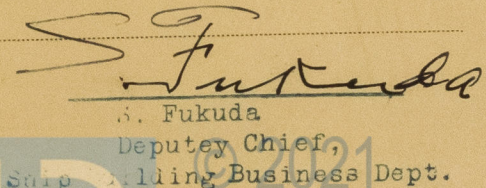 S. Fukuda
S. Fukuda
Deputey Chief,
Ship Building Business Dept.
© 2021